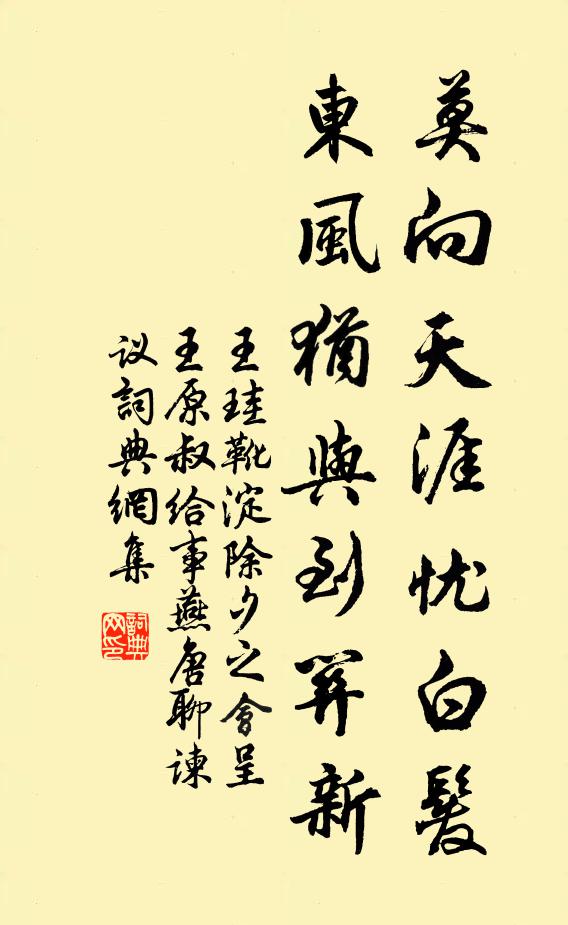 莫向天涯忧白髮
東風猶與到羿新
王珪靴淀除夕之會呈
王原叔给事燕唐聊谏
议詞典網集
詞典
网印